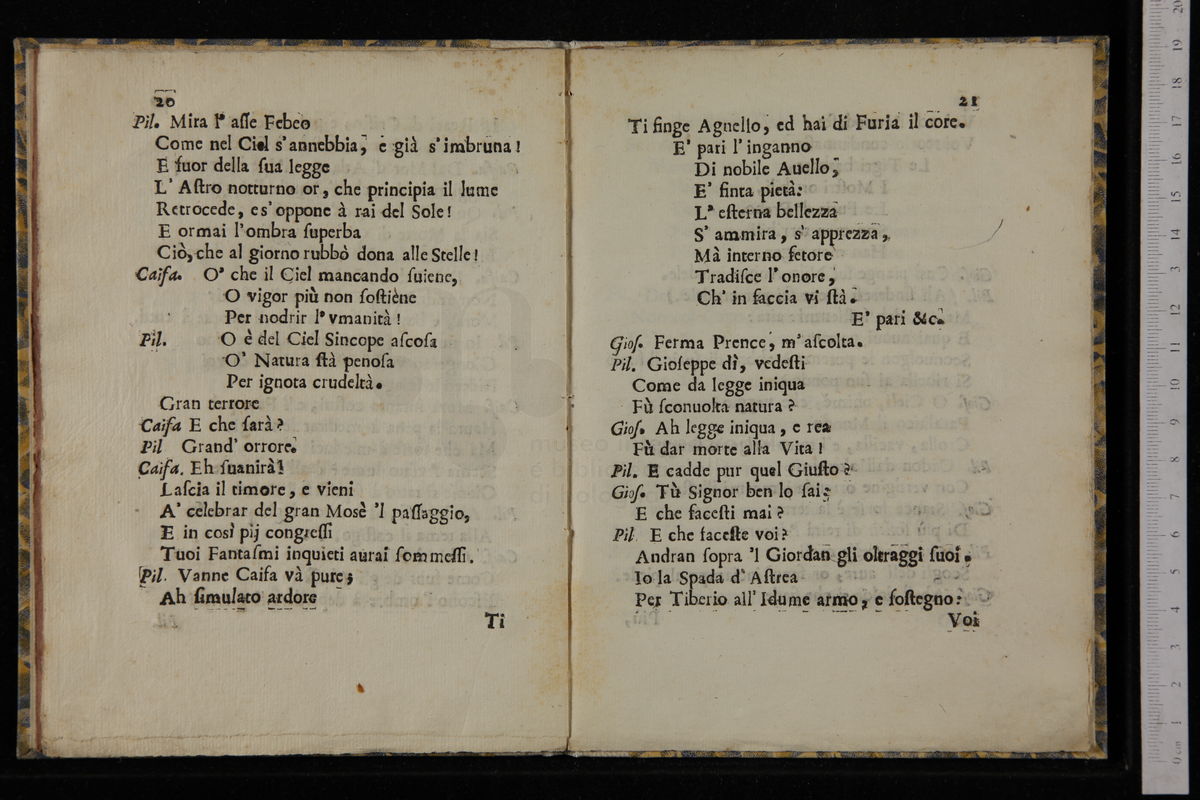 20
Pil. Mira l' asse Febeo
Come nel Ciel s'annebbia, e già s'imbruna!
E fuor della ſua legge
L' Aſtro notturno or, che principia il lume
Retrocede, e s'oppone à rai del Sole!
E ormai l'ombra ſuperba
Ciò, che al giorno rubbò dona alle Stelle!
Caifa. O' che il Ciel mancando ſuiene,
O vigor più non ſoſtiène
Per nodrir l' vmanità!
Pil. O è del Ciel Sincope aſcoſa
O' Natura ſtà penoſa
Per ignota crudeltà.
Gran terrore
Caifa E che ſarà?
Pil Grand' orrore.
Caifa. Eh ſuanirà!
Laſcia il timore, e vieni
A' celebrar del gran Mosè 'l paſſaggio,
E in così pij congreſſi
Tuoi Fantaſmi inquieti aurai ſommeſſi.
Pil. Vanne Caifa và pure;
Ah ſimulato ardore
Ti
21
Ti finge Agnello, ed hai di Furia il core.
E' pari l' inganno
Di nobile Auello,
E' finta pietà:
L' eſterna bellezza
S' ammira, s' apprezza,
Mà interno fetore
Tradiſce l' onore,
Ch' in faccia vi ſtà.
E' pari &c.
Gioſ. Ferma Prence, m' aſcolta.
Pil. Gioſeppe dì, vedeſti
Come da legge iniqua
Fù ſconuolta natura?
Gioſ. Ah legge iniqua, e rea
Fù dar morte alla Vita!
Pil. E cadde pur quel Giuſto?
Gioſ. Tù Signor ben lo ſai;
E che faceſti mai?
Pil. E che faceſte voi?
Andran ſopra 'l Giordan gli oltraggi ſuoi.
Io la Spada d' Aſtrea
Per Tiberio all' Idume armo, e ſoſtegno:
Voi